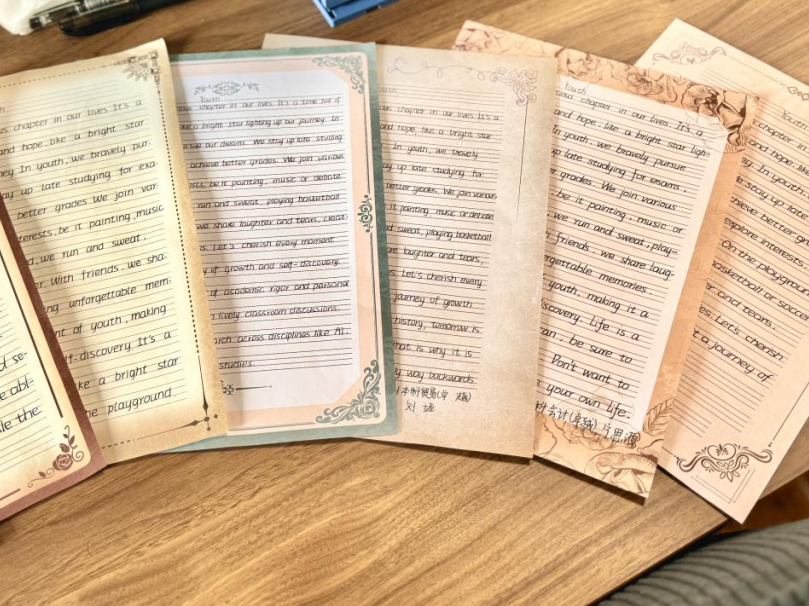 d se-
le abl-
le the
us chapter in our lives. It's a
and hope, like a bright star
ney. In youth, we bravely pur-
ay up late studying for exa-
better grades. We join var-
terests, be it painting, music
d, we run and sweat,
er. With friends, we sha-
ng unforgettable mem-
nt of youth, making
f-discovery. It's a
ke a bright star
he playground
Youth
chapter in our lives. It's a time full of
a bright star lighting up our journey. In
sue our dreams. We stay up late studying
achieve better grades. We join various
sts, be it painting, music or debate
run and sweat, playing basketball
we share laughter and tears, creat
s. Let's cherish every moment
y of growth and self-discovery.
of academic rigor and personal
n lively classroom discussions.
rch across disciplines like AI.
studies.
th
us chapter in our lives. It's a
and hope, like a bright star
In youth, we bravely
ay up late studying for
better grades. We join various
it painting, music or debate
d sweat, playing basketball
re laughter and tears,
s. Let's cherish every
journey of growth
history, tomorrow is
hat is why it is
ly way backwards
刘
Youth
ious chapter in our lives. It's a
and hope, like a bright star ligh-
In youth, we bravely pursue
up late studying for exams,
r grades. We join various
be it painting, music or
we run and sweat, play-
h friends, we share laug-
rgettable memories
youth, making it a
iscovery. Life is a
can. be sure to
Don't want to
your own life.
会计(卓越)
chapter in our
and hope, like
ey. In youth,
We stay up late
hieve better gra
explore interests
On the playgroun
basketball or socce
er and tears,
es. Let's cherish
t a journey of